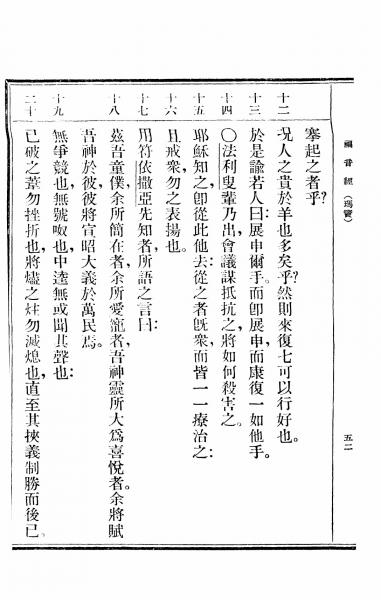 福音經 (瑪竇) 五二
搴起之者乎?
十二 況人之貴於羊也多矣乎?然則來復七可以行好也。
十三 於是諭若人曰:展申爾手。而卽展申,而康復一如他手。
十四 〇法利叟輩乃出會議謀抵抗之,將如何殺害之。
十五 耶穌知之,卽從此他去:從之者旣衆,而皆一一療治之:
十六 且戒衆勿之表揚也。
十七 用符依撒亞先知者,所語之言曰:
十八 茲吾童僕,余所簡在者,余所愛寵者,吾神靈所大爲喜悅者。余將賦
吾神於彼,彼將宣昭大義於萬民焉。
十九 無爭競也,無號呶也,中逵無或聞其聲也:
二十 已破之葦勿挫折也,將燼之炷勿滅熄也,直至其挾義制勝而後已。